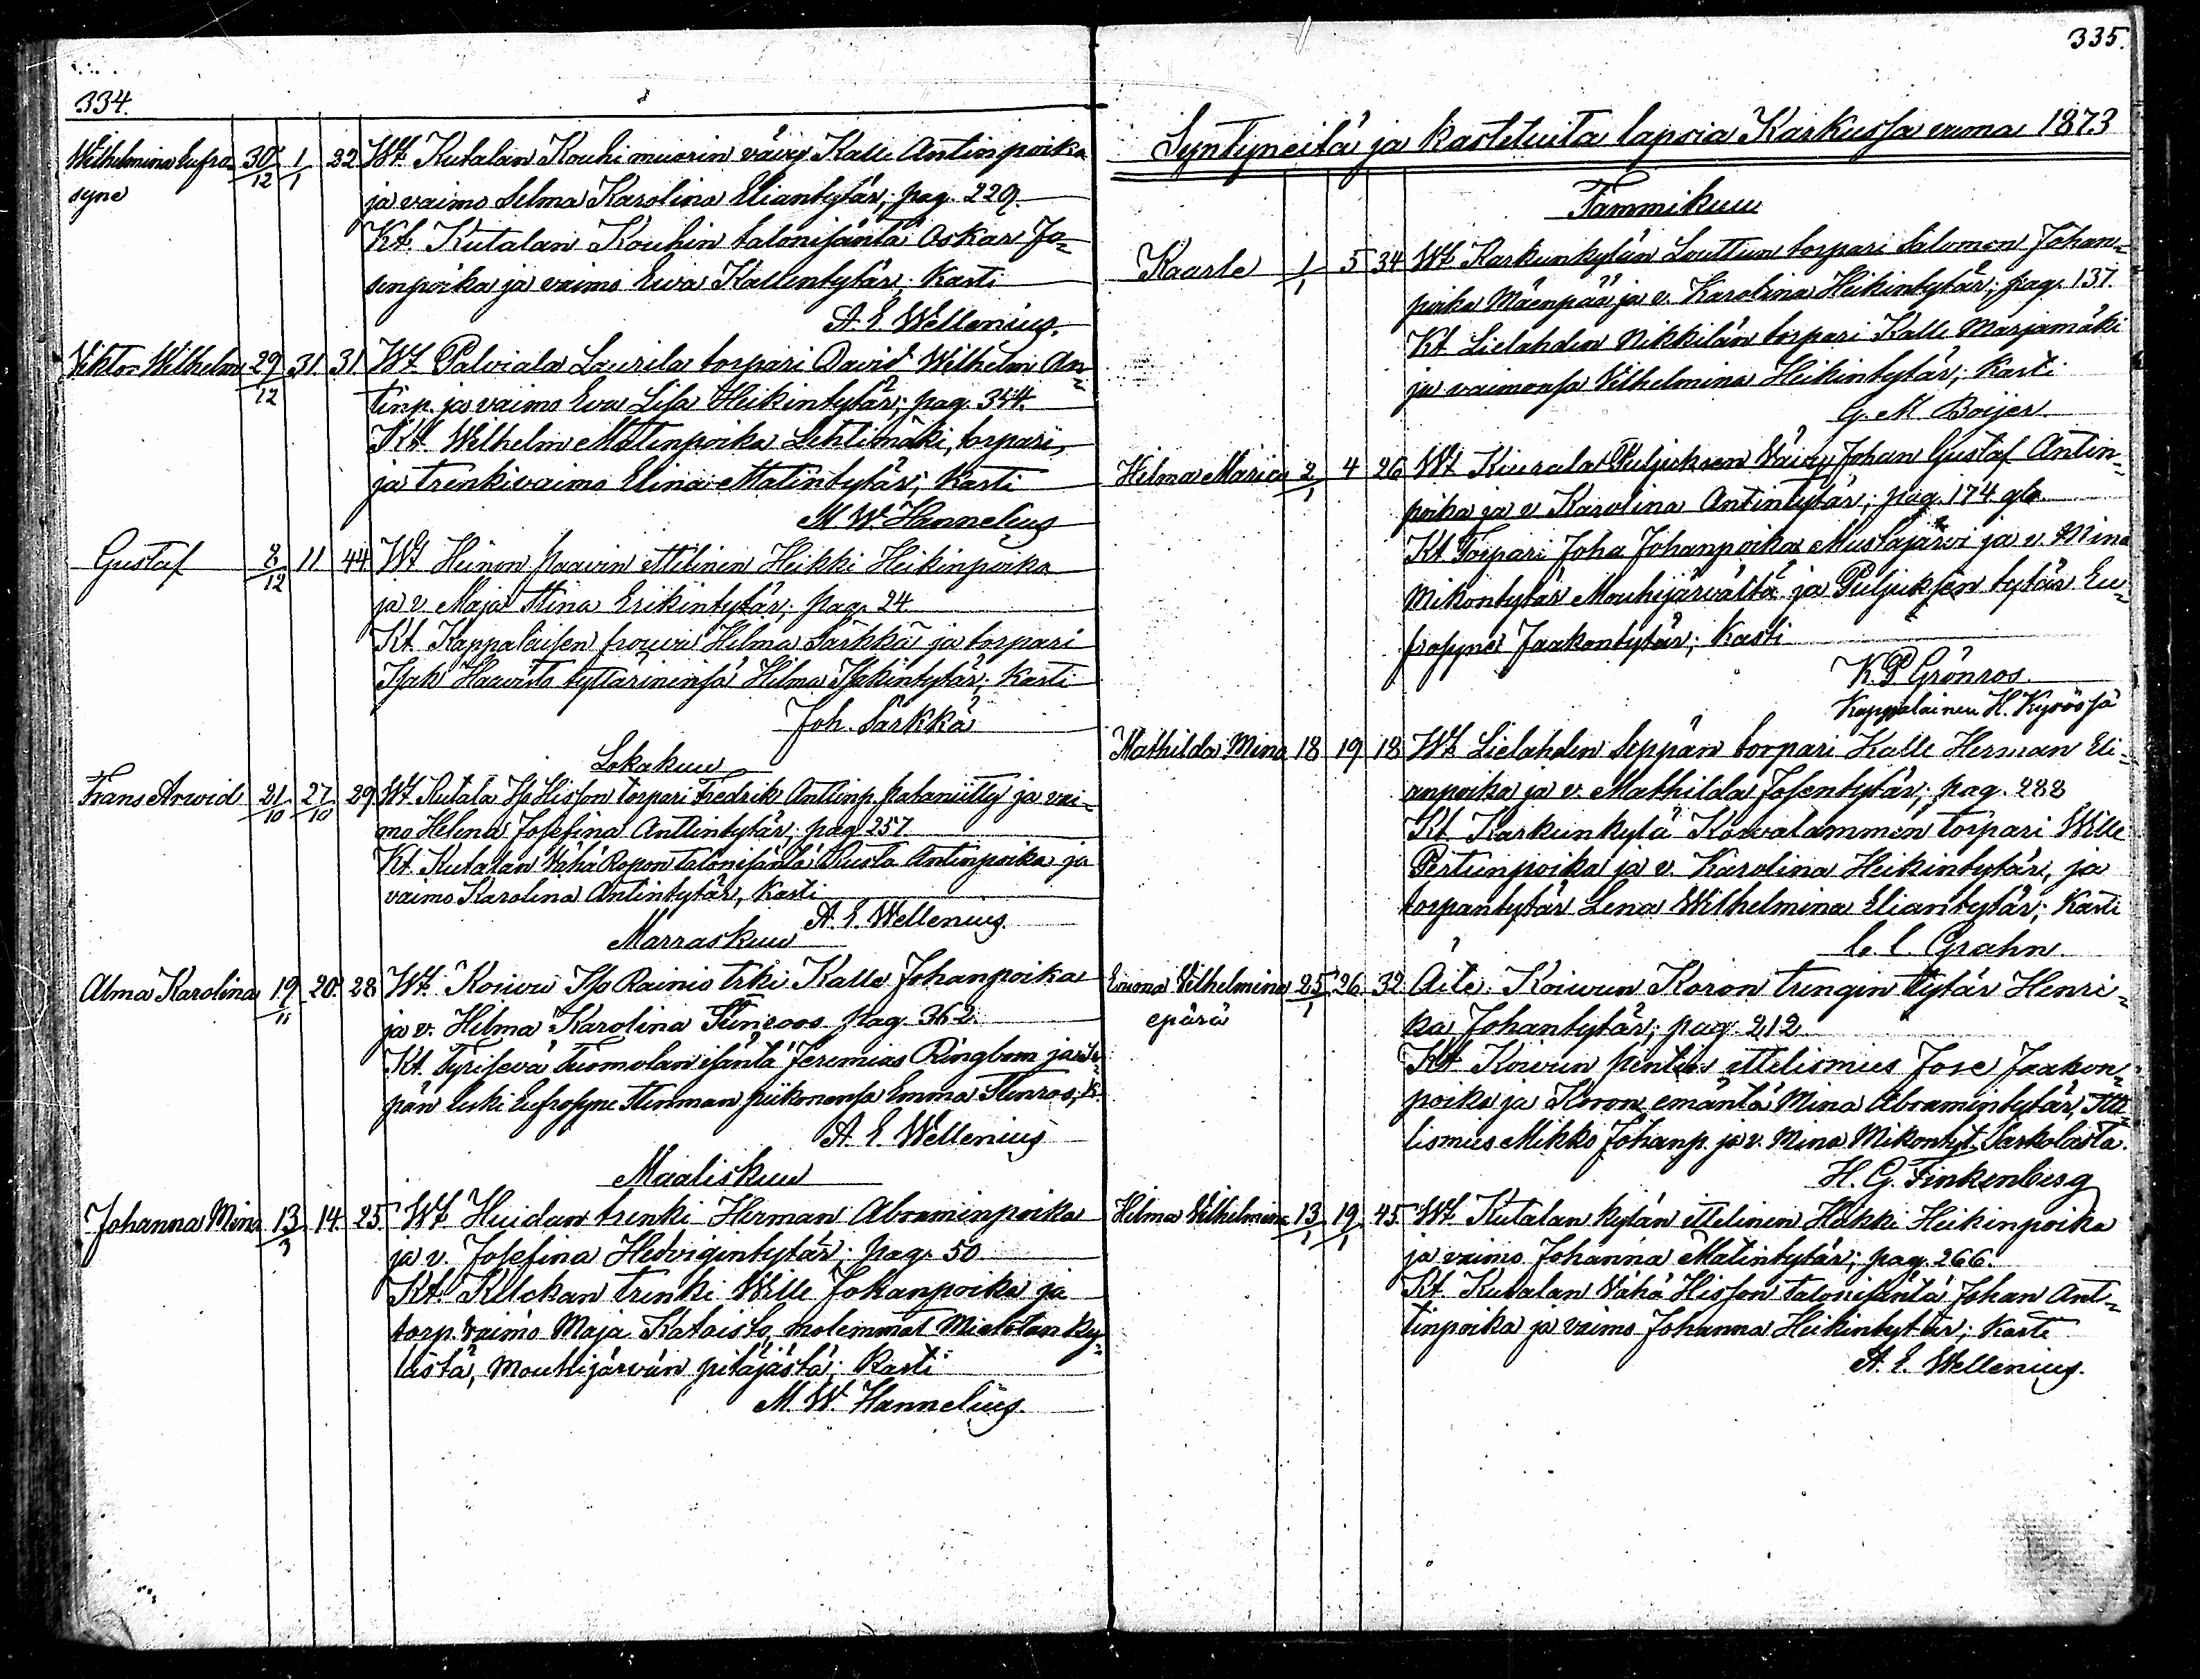 334.
Wilhelmina Eufro- 30/12 1/1 22 Wt. Kutalan Kouhi muorin vävy Kalle Antinpoika
syne ja vaimo Selma Karolina Eliantytär; pag. 229.
Kt. Kutalan Kouhin talonisäntä Oskar Jo-
senpoika ja vaimo Ewa Kallentytär; Kasti
A. E. Wellenius.
Viktor Wilhelm 29/12 31 31 Wt Palviala Laurila torpari David Wilhelm An-
tinp. ja vaimo Eva Lisa Heikintytär; pag. 354.
Kt. Wilhelm Matinpoika Lehtimäki, torpari,
ja trenkivaimo Elina Matintytär; Kasti
M W. Hannelius
Gustaf 8/12 11 44 Wt Heinon Paavin ittelinen Heikki Heikinpoika
ja v. Maja Stina Erikintytär; pag. 24
Kt. Kappalaisen frouva Hilma Särkkä ja torpari
Isak Haavisto tyttärinensä Hilma Isakintytär; Kasti
Joh. Särkkä
Lokakuu
Frans Arvid 21/10 27/10 29 Wt Kutala Iso Hisson torpari Fredrik Anttinp. Pataniitty ja vai-
mo Helena Josefina Anttintytär; pag 257
Kt. Kutalan Vähä Ropon talonisäntä Kusta Antinpoika ja
vaimo Karolina Antintytär, Kasti
A. E. Wellenius.
Marraskuu
Alma Karolina 19/11 20 28 Wt. Koivu Iso Rainio trki Kalle Johanpoika
ja v. Hilma Karolina pag. 362.
Kt. Tyrisevä Tuomolan isäntä Jeremias Ringbom ja Se-
pän leski Eufrosyne Stenman piikonensa Emma Stenros; K.
A. E. Wellenius
Maaliskuu
Johanna Mina 13/3 14 25 Wt Huidan trenki Herman Abraminpoika
ja v. Josefina Hedvigintytär; pag. 50
Kt. Kilckan trenki Wille Johanpoika ja
torp. vaimo Maja Kataisto, molemmat Mietolan ky-
lästä, Mouhijärvän pitäjästä; Kasti
M. W. Hannelius.
335.
Syntyneitä ja kastetuita lapsia Karkussa vuona 1873
Tammikuu
Kaarle 1/1 5 34 Wt Karkunkylän Louttun torpari Salomon Johan-
poika Mäenpää ja v. Karolina Heikintytär; pag. 137.
Kt Lielahden Nikkilän torpari Kalle Marjamäki
ja vaimonsa Vilhelmina Heikintytär; Kasti
G. M. Boijer.
Hilma Maria 2/1 4 26 Wt Kiurala Puljuksen Vävy Johan Gustaf Antin-
poika ja v Karolina Antintytär; pag. 174 gla.
Kt Torpari Joha Johanpoika Mustajärvi ja v. Mina
Mikontytär Mouhijärvältä ja Puljuksen tytär Eu-
frosyne Jaakontytär; Kasti
K. P. Grönros
Kappalainen H. Kyrössä
Mathilda Mina 18 19 18 Wt Lielahden Seppän torpari Kalle Herman Eli-
anpoika ja v. Mathilda Josentytär; pag. 288
Kt Karkunkylä Kowalammen torpari Wille
Pertunpoika ja v. Karolina Heikintytär, ja
torpantytär Lena Wilhelmina Eliantytär; Kasti
C. C. Grahn
Emma Vilhelmina 25/1 26 32 Äite: Koivun Koron trengin tytär Henri-
epärä ka Johantytär; pag. 212
Kt Koivun Pentis ittelismies Jose Jaakon-
poika ja Koron emäntä Mina Abramintytär, Itte-
lismies Mikko Johanp. ja v. Mina Mikontyt. Sarkolasta.
H. G. Finkenberg
Hilma Vilhelmina 13/1 19/1 45 Wt Kutalan kylän ittelinen Heikki Heikinpoika
ja vaimo Johanna Matintytär; pag. 266.
Kt. Kutalan Vähä Hisson talonisäntä Johan Ant-
tinpoika ja vaimo Johanna Heikintytär; Kaste
A. E. Wellenius.